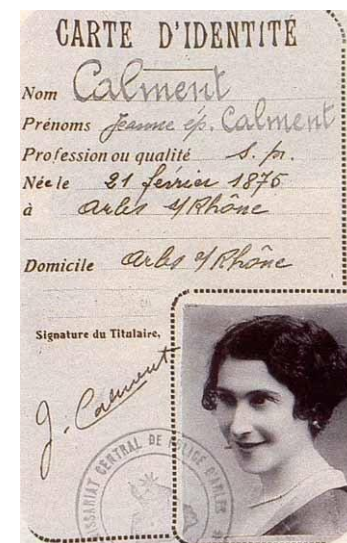 CARTE D'IDENTITÉ
Nom Calment
Prénoms Jeanne ép. Calment
Profession ou qualité s. p.
Née le 21 février 1875
à Arles s/Rhône
Domicile Arles s/Rhône
Signature du Titulaire,
J. Calment
COMMISSARIAT CENTRAL DE POLICE D'ARLES